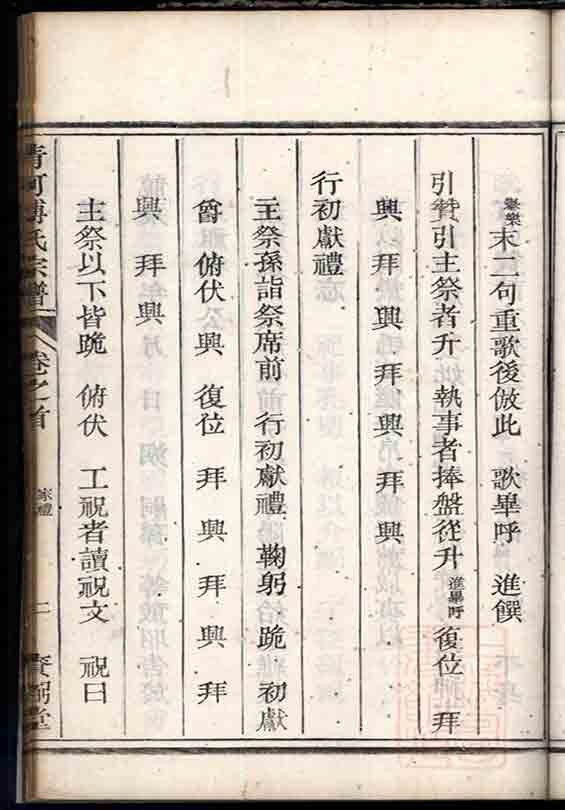 舉樂末二句重歌後倣此 歌畢呼 進饌
引贊引主祭者升 執事者捧盤從升進畢呼復位 拜
興 拜 興 拜 興 拜 興
行初獻禮
主祭孫詣祭席前 行初獻禮 鞠躬 跪 初獻
爵 俯伏 興 復位 拜 興 拜 興 拜
興 拜 興
主祭以下皆跪 俯伏 工祝者讀祝文 祝曰
清河傅氏宗譜 卷之首 家禮 二 賚弼堂